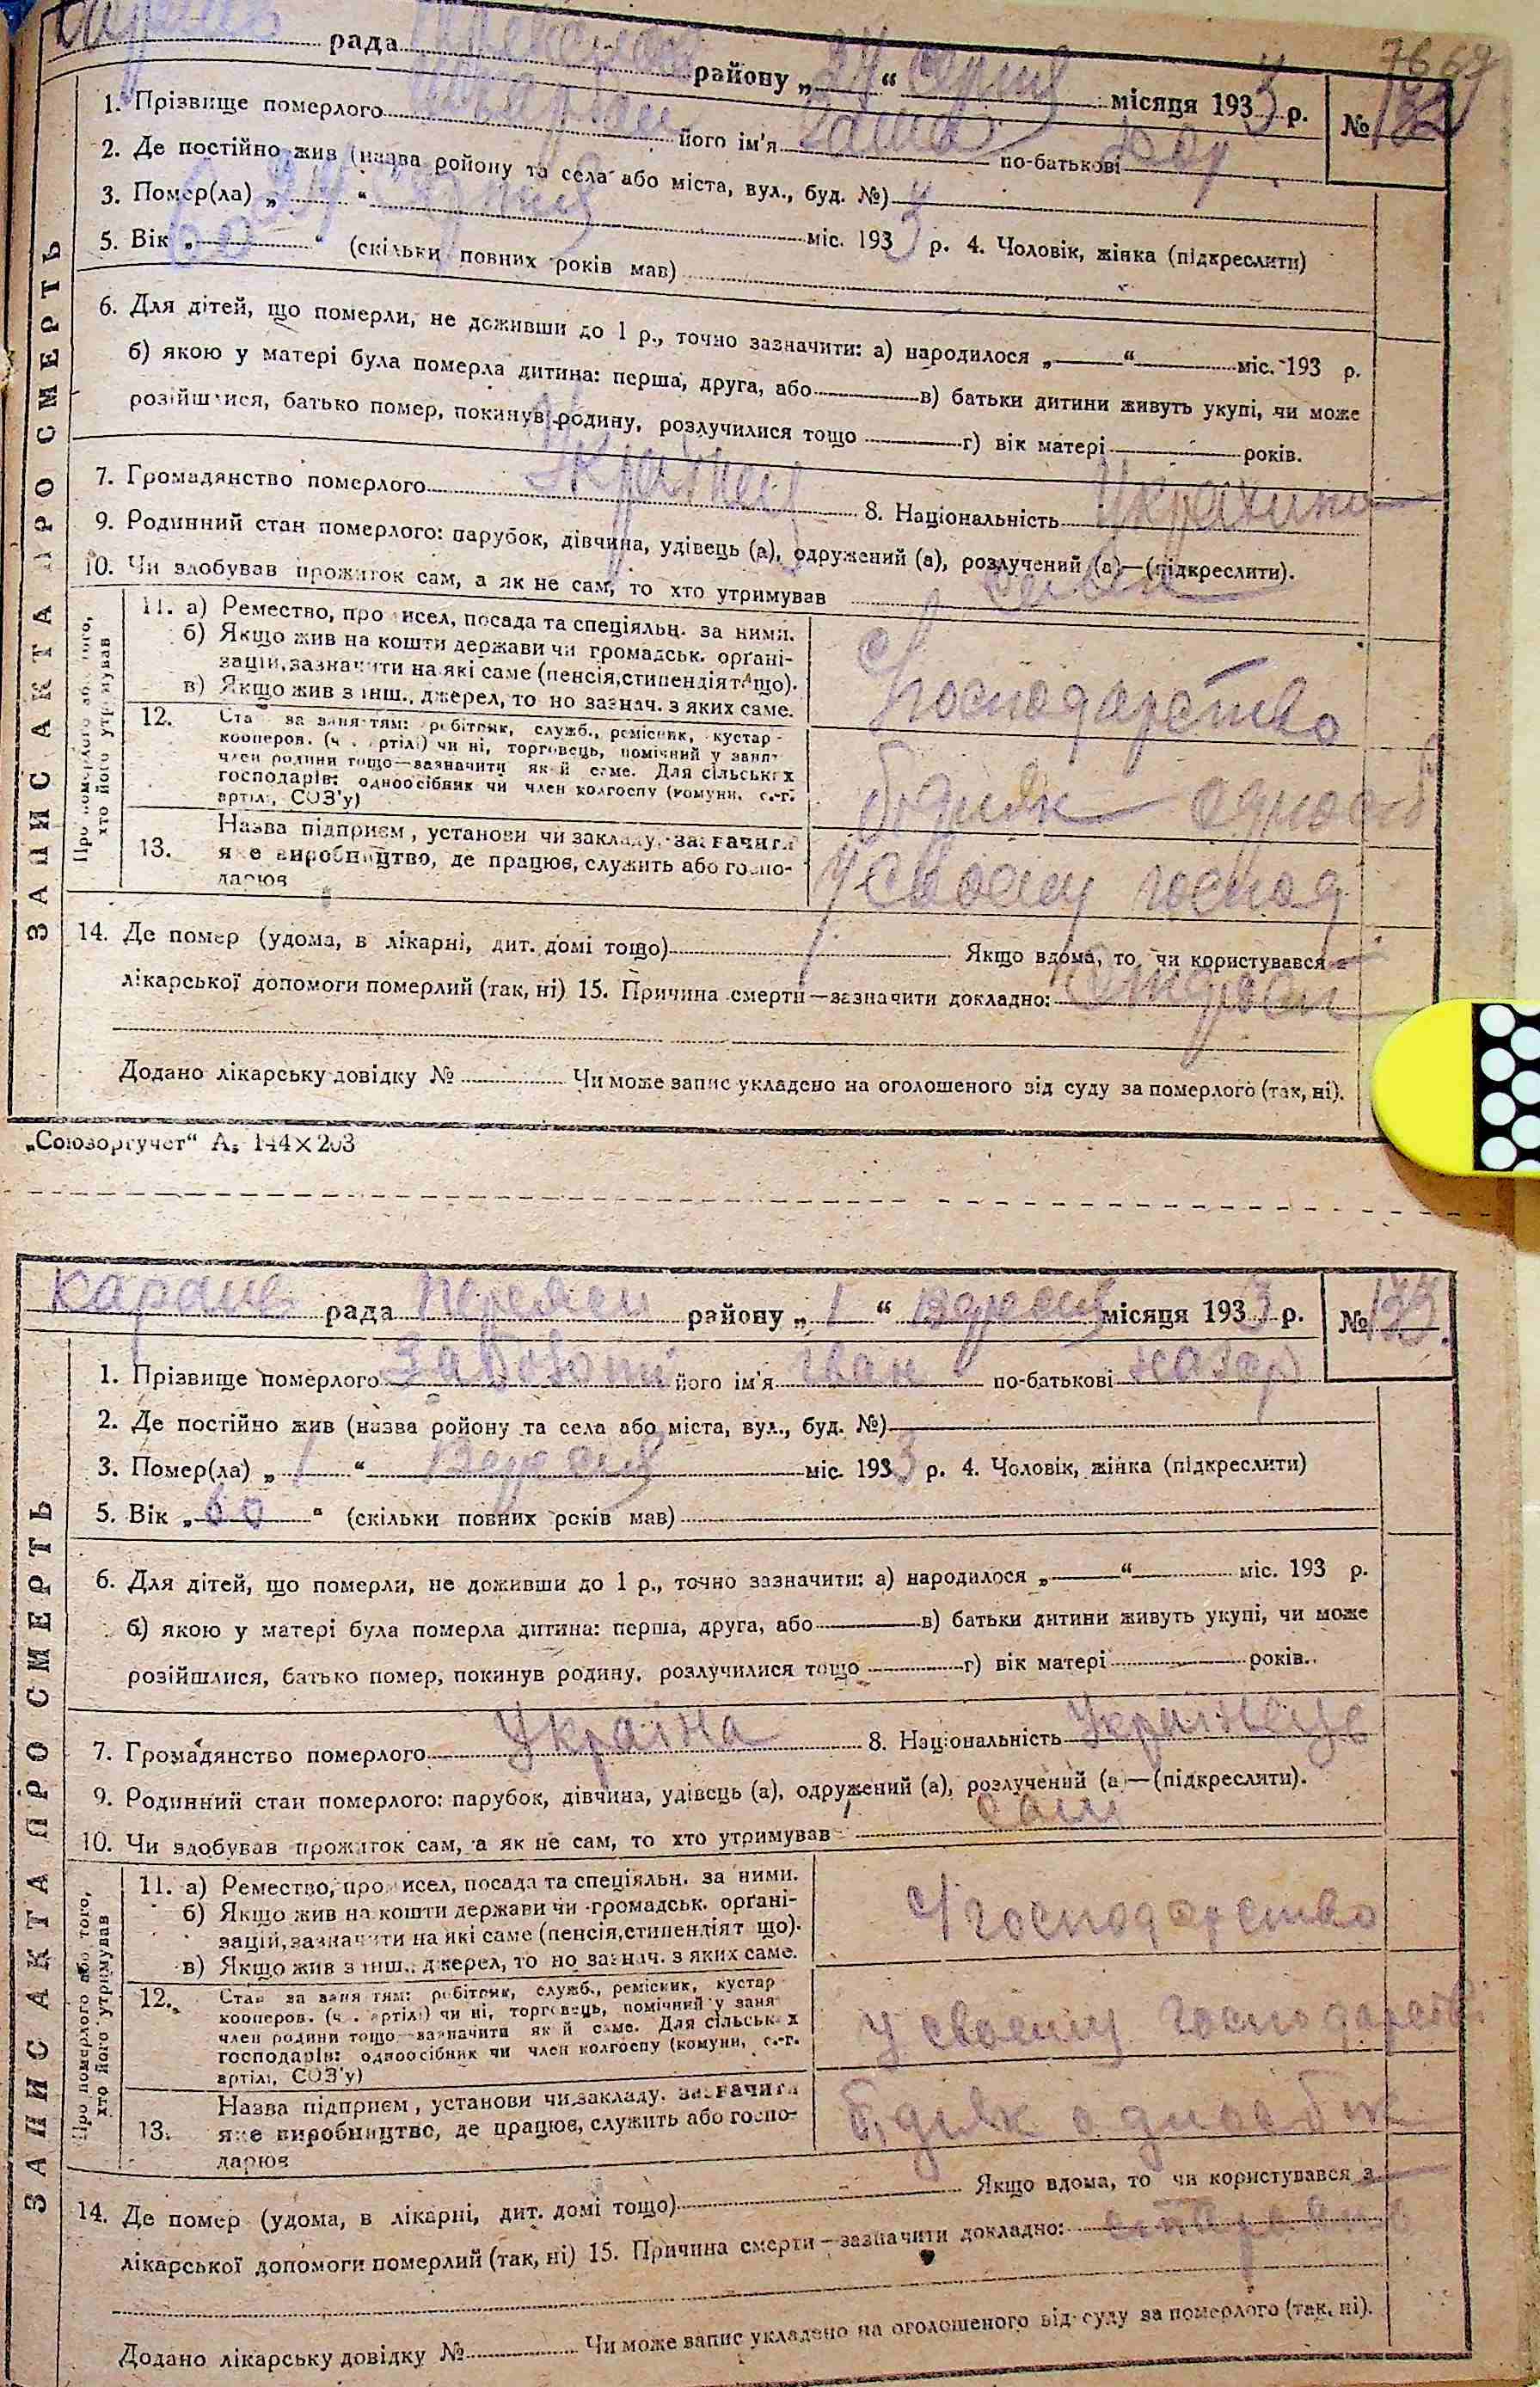 рада району „24“ серпня місяця 1933 р. №
1. Прізвище померлого його ім'я по-батькові
2. Де постійно жив (назва ройону та села або міста, вул., буд. №)
3. Помер(ла) „24“ серпня міс. 1933 р. 4. Чоловік, жінка (підкреслити)
5. Вік „60“ (скільки повних років мав)
6. Для дітей, що померли, не доживши до 1 р., точно зазначити: а) народилося „ “ міс. 193 р.
б) якою у матері була померла дитина: перша, друга, або в) батьки дитини живуть укупі, чи може
розійшлися, батько помер, покинув родину, розлучилися тощо г) вік матері років.
7. Громадянство померлого 8. Національність
9. Родинний стан померлого: парубок, дівчина, удівець (а), одружений (а), розлучений (а)—(підкреслити).
10. Чи здобував прожиток сам, а як не сам, то хто утримував
11. а) Ремество, промисел, посада та спеціяльн. за ними.
б) Якщо жив на кошти держави чи громадськ. орґані-
зацій, зазначити на які саме (пенсія, стипендія тощо).
в) Якщо жив з інш., джерел, то но зазнач. з яких саме.
господарство
12. Стан за заняттям: робітник, служб., ремісник, кустар
кооперов. (ч. артілі) чи ні, торговець, помічний у занят
член родини тощо—зазначити який саме. Для сільських
господарів: одноосібник чи член колгоспу (комуни, с.-г.
артілі, СОЗ'у)
бідняк одноосіб
13. Назва підприєм, установи чи закладу, зазначити
яке виробництво, де працює, служить або госпо-
дарює
у своєму господ
14. Де помер (удома, в лікарні, дит. домі тощо) Якщо вдома, то чи користувався з
лікарської допомоги померлий (так, ні) 15. Причина смерти—зазначити докладно:
Додано лікарську довідку № Чи може запис укладено на оголошеного від суду за померлого (так, ні).
ЗАПИС АКТА ПРО СМЕРТЬ
Про померлого або того,
хто його утримував
„Союзоргучет“ А5 144×203
рада району „1“ Вересня місяця 1933 р. № 133.
1. Прізвище померлого його ім'я Іван по-батькові Назар
2. Де постійно жив (назва ройону та села або міста, вул., буд. №)
3. Помер(ла) „1“ Вересня міс. 1933 р. 4. Чоловік, жінка (підкреслити)
5. Вік „60“ (скільки повних років мав)
6. Для дітей, що померли, не доживши до 1 р., точно зазначити: а) народилося „ “ міс. 193 р.
б) якою у матері була померла дитина: перша, друга, або в) батьки дитини живуть укупі, чи може
розійшлися, батько помер, покинув родину, розлучилися тощо г) вік матері років.
7. Громадянство померлого Україна 8. Національність
9. Родинний стан померлого: парубок, дівчина, удівець (а), одружений (а), розлучений (а)—(підкреслити).
10. Чи здобував прожиток сам, а як не сам, то хто утримував сам
11. а) Ремество, промисел, посада та спеціяльн. за ними.
б) Якщо жив на кошти держави чи громадськ. орґані-
зацій, зазначити на які саме (пенсія, стипендія тощо).
в) Якщо жив з інш., джерел, то но зазнач. з яких саме.
господарство
12. Стан за заняттям: робітник, служб., ремісник, кустар
кооперов. (ч. артілі) чи ні, торговець, помічний у занят
член родини тощо—зазначити який саме. Для сільських
господарів: одноосібник чи член колгоспу (комуни, с.-г.
артілі, СОЗ'у)
у своєму господарстві
13. Назва підприєм, установи чи закладу, зазначити
яке виробництво, де працює, служить або госпо-
дарює
бідняк
14. Де помер (удома, в лікарні, дит. домі тощо) Якщо вдома, то чи користувався з
лікарської допомоги померлий (так, ні) 15. Причина смерти—зазначити докладно:
Додано лікарську довідку № Чи може запис укладено на оголошеного від суду за померлого (так, ні).
ЗАПИС АКТА ПРО СМЕРТЬ
Про померлого або того,
хто його утримував